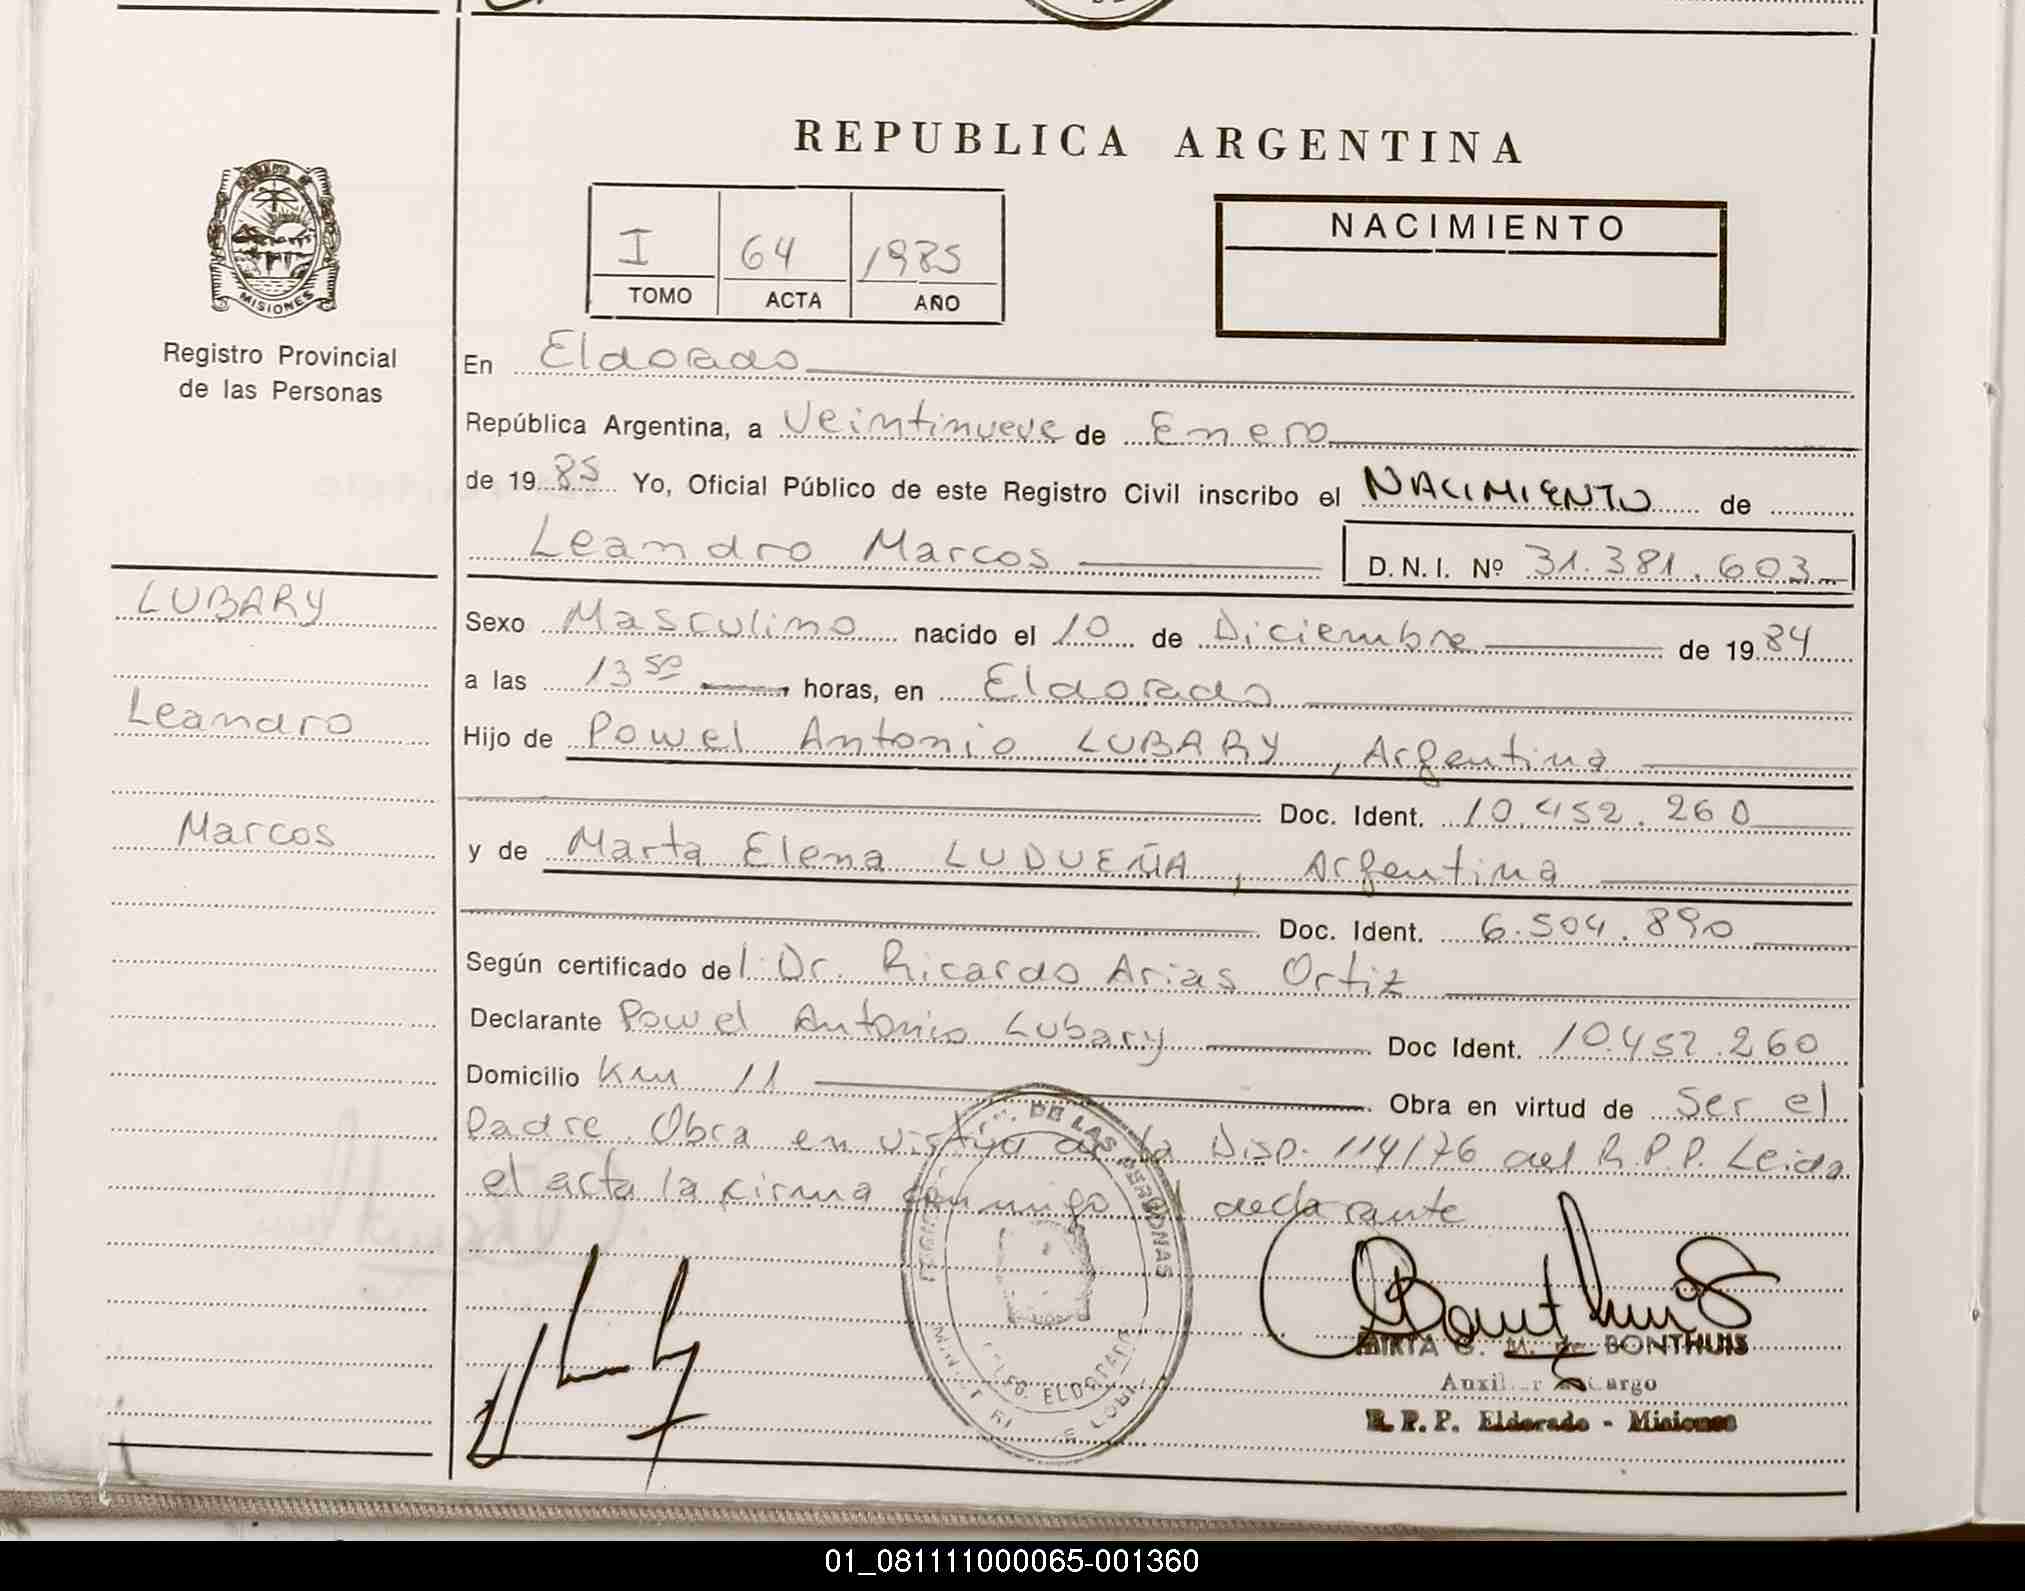 REPUBLICA ARGENTINA
MISIONES
Registro Provincial
de las Personas
I 64 1985
TOMO ACTA AÑO
NACIMIENTO
En Eldorado
República Argentina, a Veintinueve de Enero
de 1985 Yo, Oficial Público de este Registro Civil inscribo el NACIMIENTO de
Leandro Marcos D.N.I. Nº 31.381.603
LUBARY
Sexo Masculino nacido el 10 de Diciembre de 1984
a las 13 50 horas, en Eldorado
Leandro
Hijo de Powel Antonio LUBARY, Argentina
Doc. Ident. 10.452.260
Marcos
y de Marta Elena LUDUEÑA, Argentina
Doc. Ident. 6.504.890
Según certificado del Dr. Ricardo Arias Ortiz
Declarante Powel Antonio Lubary Doc Ident. 10.452.260
Domicilio Km 11 Obra en virtud de Ser el
Padre. Obra en virtud de la Disp. 114/76 del R.P.P. Leida
el acta la firma conmigo el declarante
DE LAS PERSONAS
ELDORADO
MIRTA G. M. de BONTHUIS
Auxiliar a Cargo
R.P.P. Eldorado - Misiones
01_081111000065-001360